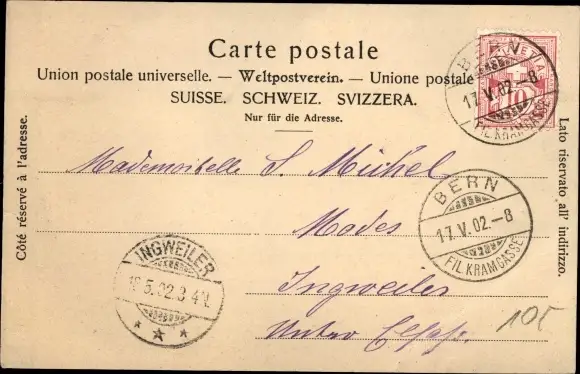 Carte postale
Union postale universelle. — Weltpostverein. — Unione postale
SUISSE. SCHWEIZ. SVIZZERA.
Nur für die Adresse.
Côté réservé à l'adresse.
Lato riservato all' indirizzo.
HELVETIA
10
BERN
17.V.02.-8
FIL.KRAMGASSE
Mademoiselle S. Michel
Modes
Ingweiler
Unter Elsaß.
BERN
17.V.02.-8
FIL.KRAMGASSE
INGWEILER
5.02.3-4N.
105